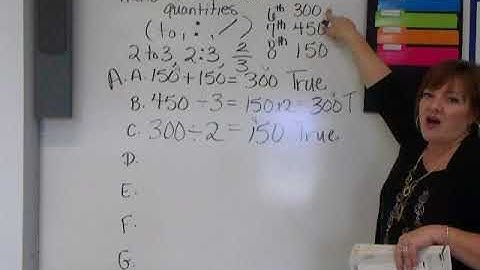 quantities
(to, :, /)
2 to 3, 2:3, 2/3
6th 300
7th 450
8th 150
A. A. 150 + 150 = 300 True
B. 450 ÷ 3 = 150 x 2 = 300 T
C. 300 ÷ 2 = 150 True
D.
E.
F.
G.